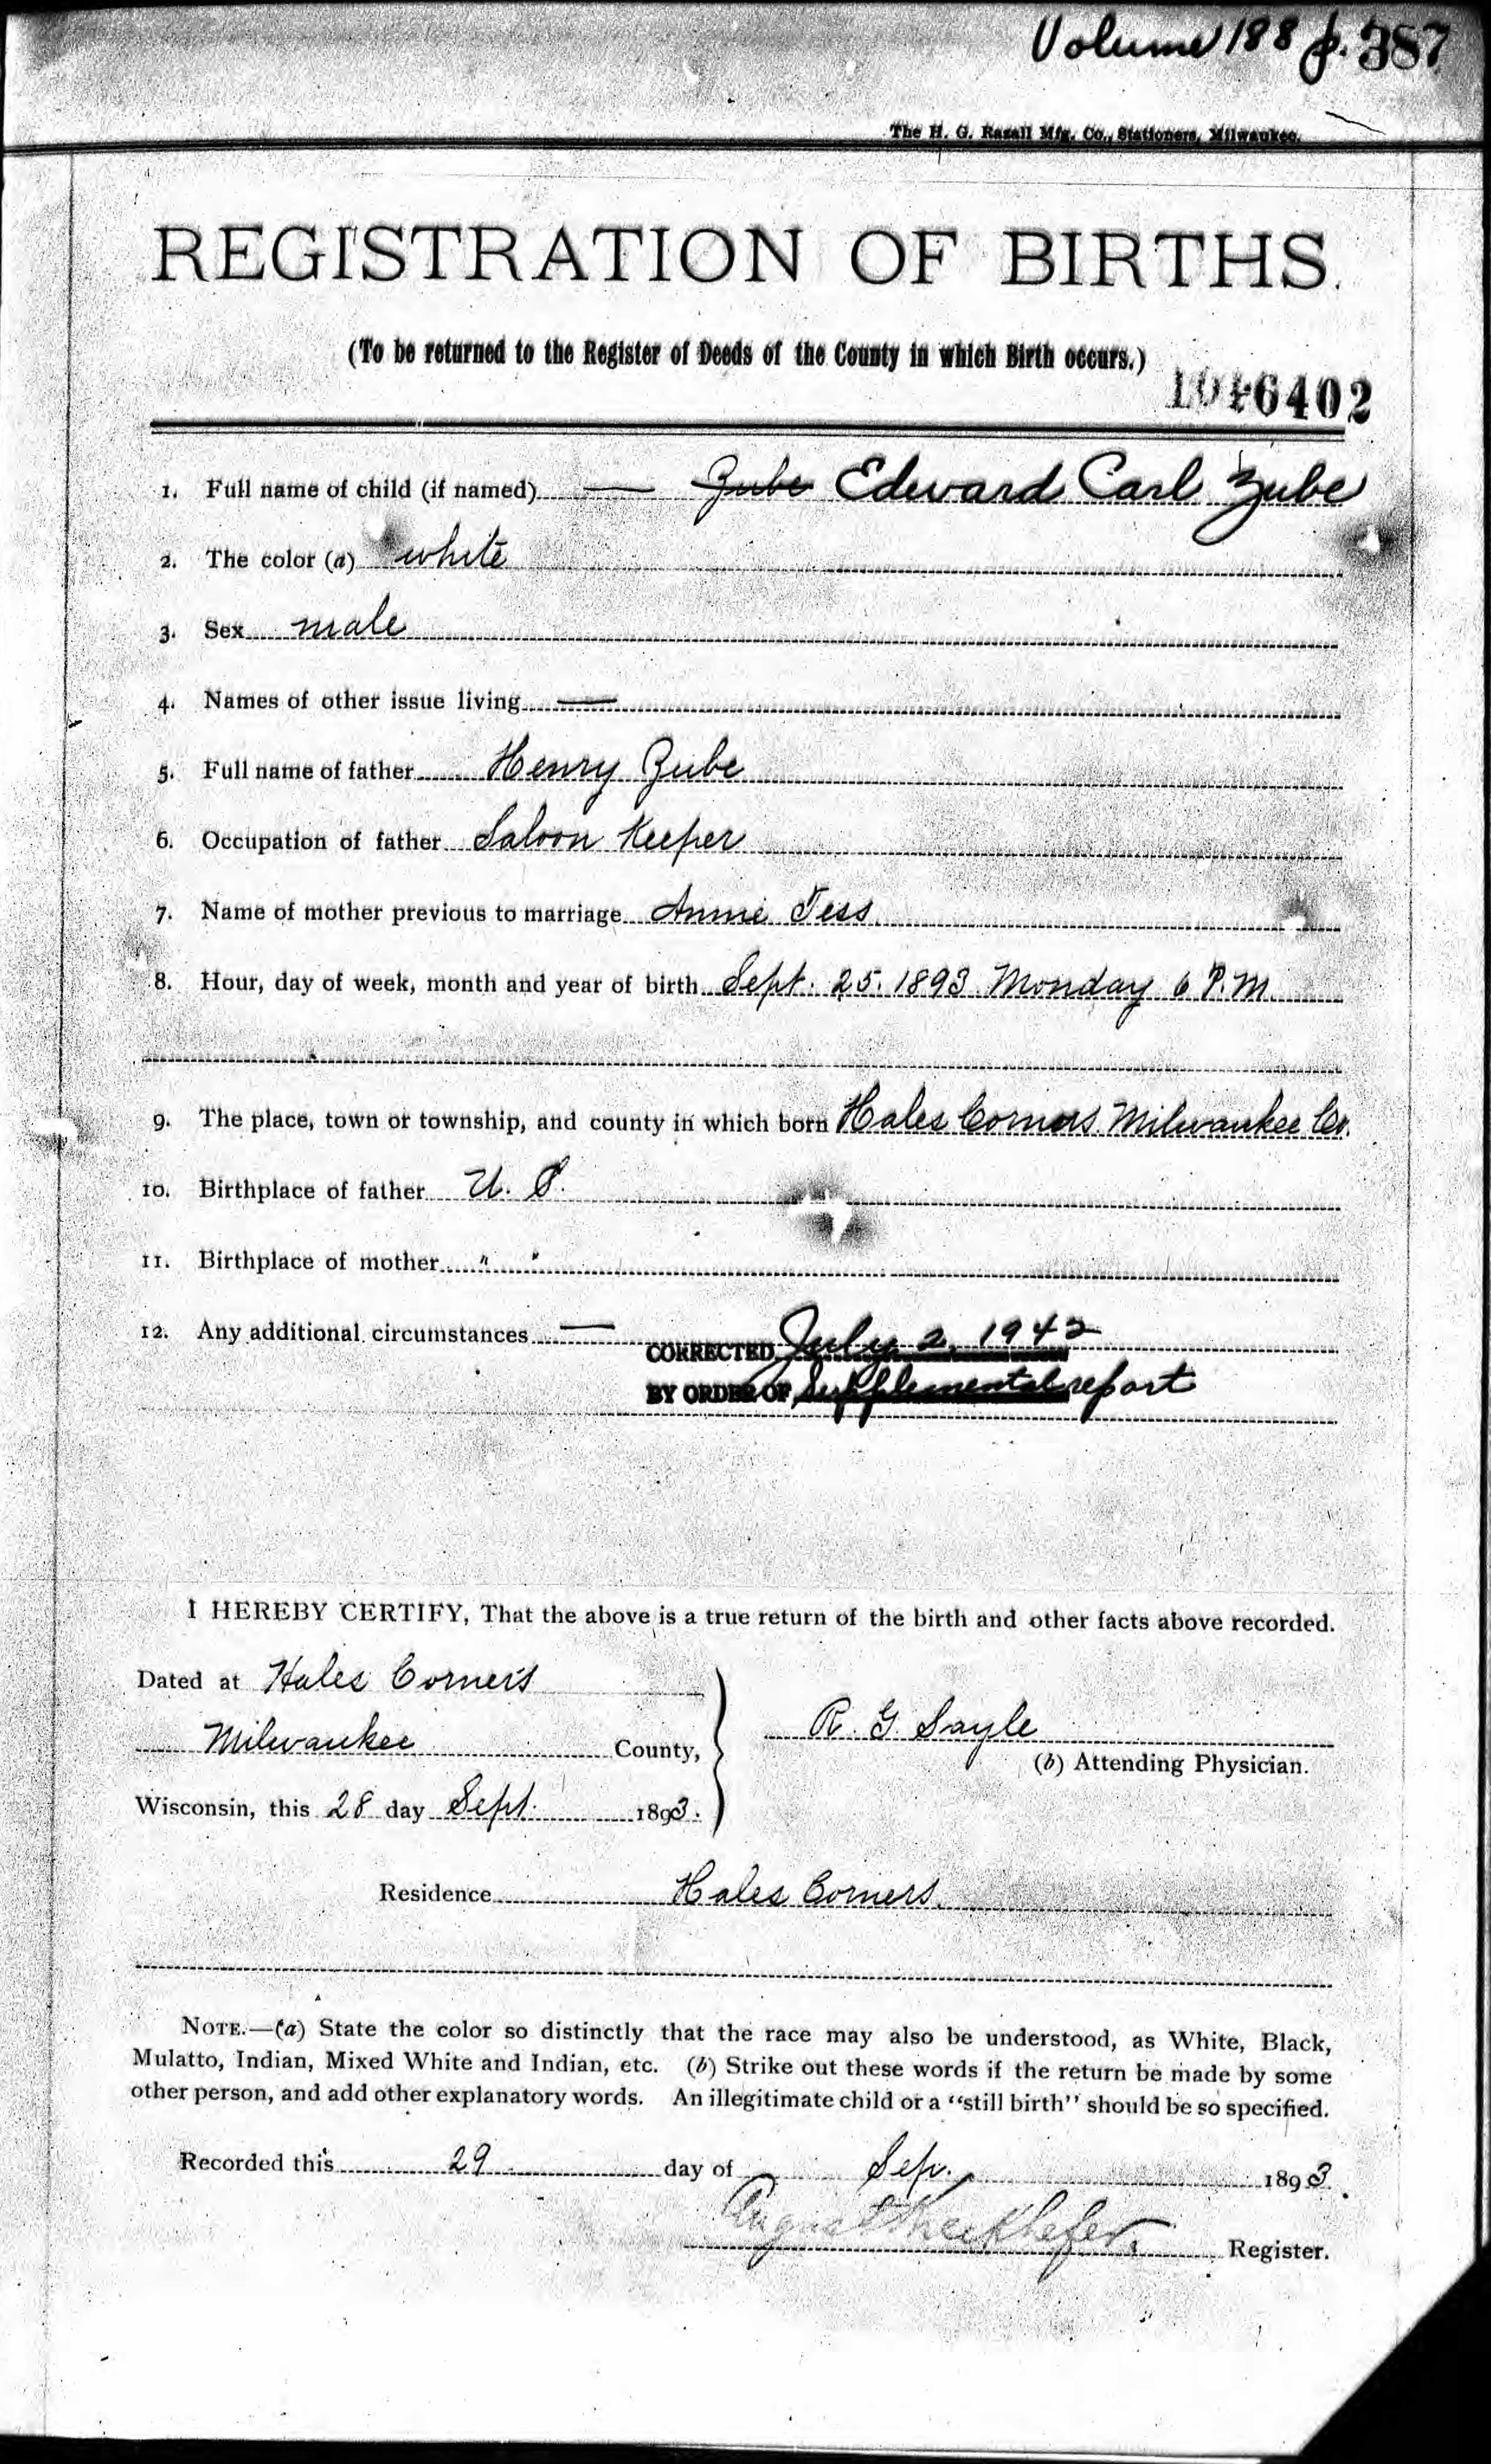 Volume 188 p. 387
The H. G. Razall Mfg. Co., Stationers, Milwaukee.
REGISTRATION OF BIRTHS.
(To be returned to the Register of Deeds of the County in which Birth occurs.)
6402
1. Full name of child (if named) — Zube Edward Carl Zube
2. The color (a) white
3. Sex male
4. Names of other issue living —
5. Full name of father Henry Zube
6. Occupation of father Saloon Keeper
7. Name of mother previous to marriage Annie Tess
8. Hour, day of week, month and year of birth Sept. 25. 1893 Monday 6 P.M.
9. The place, town or township, and county in which born Hales Corners Milwaukee Co.
10. Birthplace of father U. S.
11. Birthplace of mother " "
12. Any additional circumstances —
CORRECTED July 2, 1942
BY ORDER OF Supplemental report
I HEREBY CERTIFY, That the above is a true return of the birth and other facts above recorded.
Dated at Hales Corners
Milwaukee County,
R. G. Sayle
(b) Attending Physician.
Wisconsin, this 28 day Sept. 1893.
Residence Hales Corners.
NOTE.—(a) State the color so distinctly that the race may also be understood, as White, Black,
Mulatto, Indian, Mixed White and Indian, etc. (b) Strike out these words if the return be made by some
other person, and add other explanatory words. An illegitimate child or a "still birth" should be so specified.
Recorded this 29 day of Sep. 1893.
August Register.